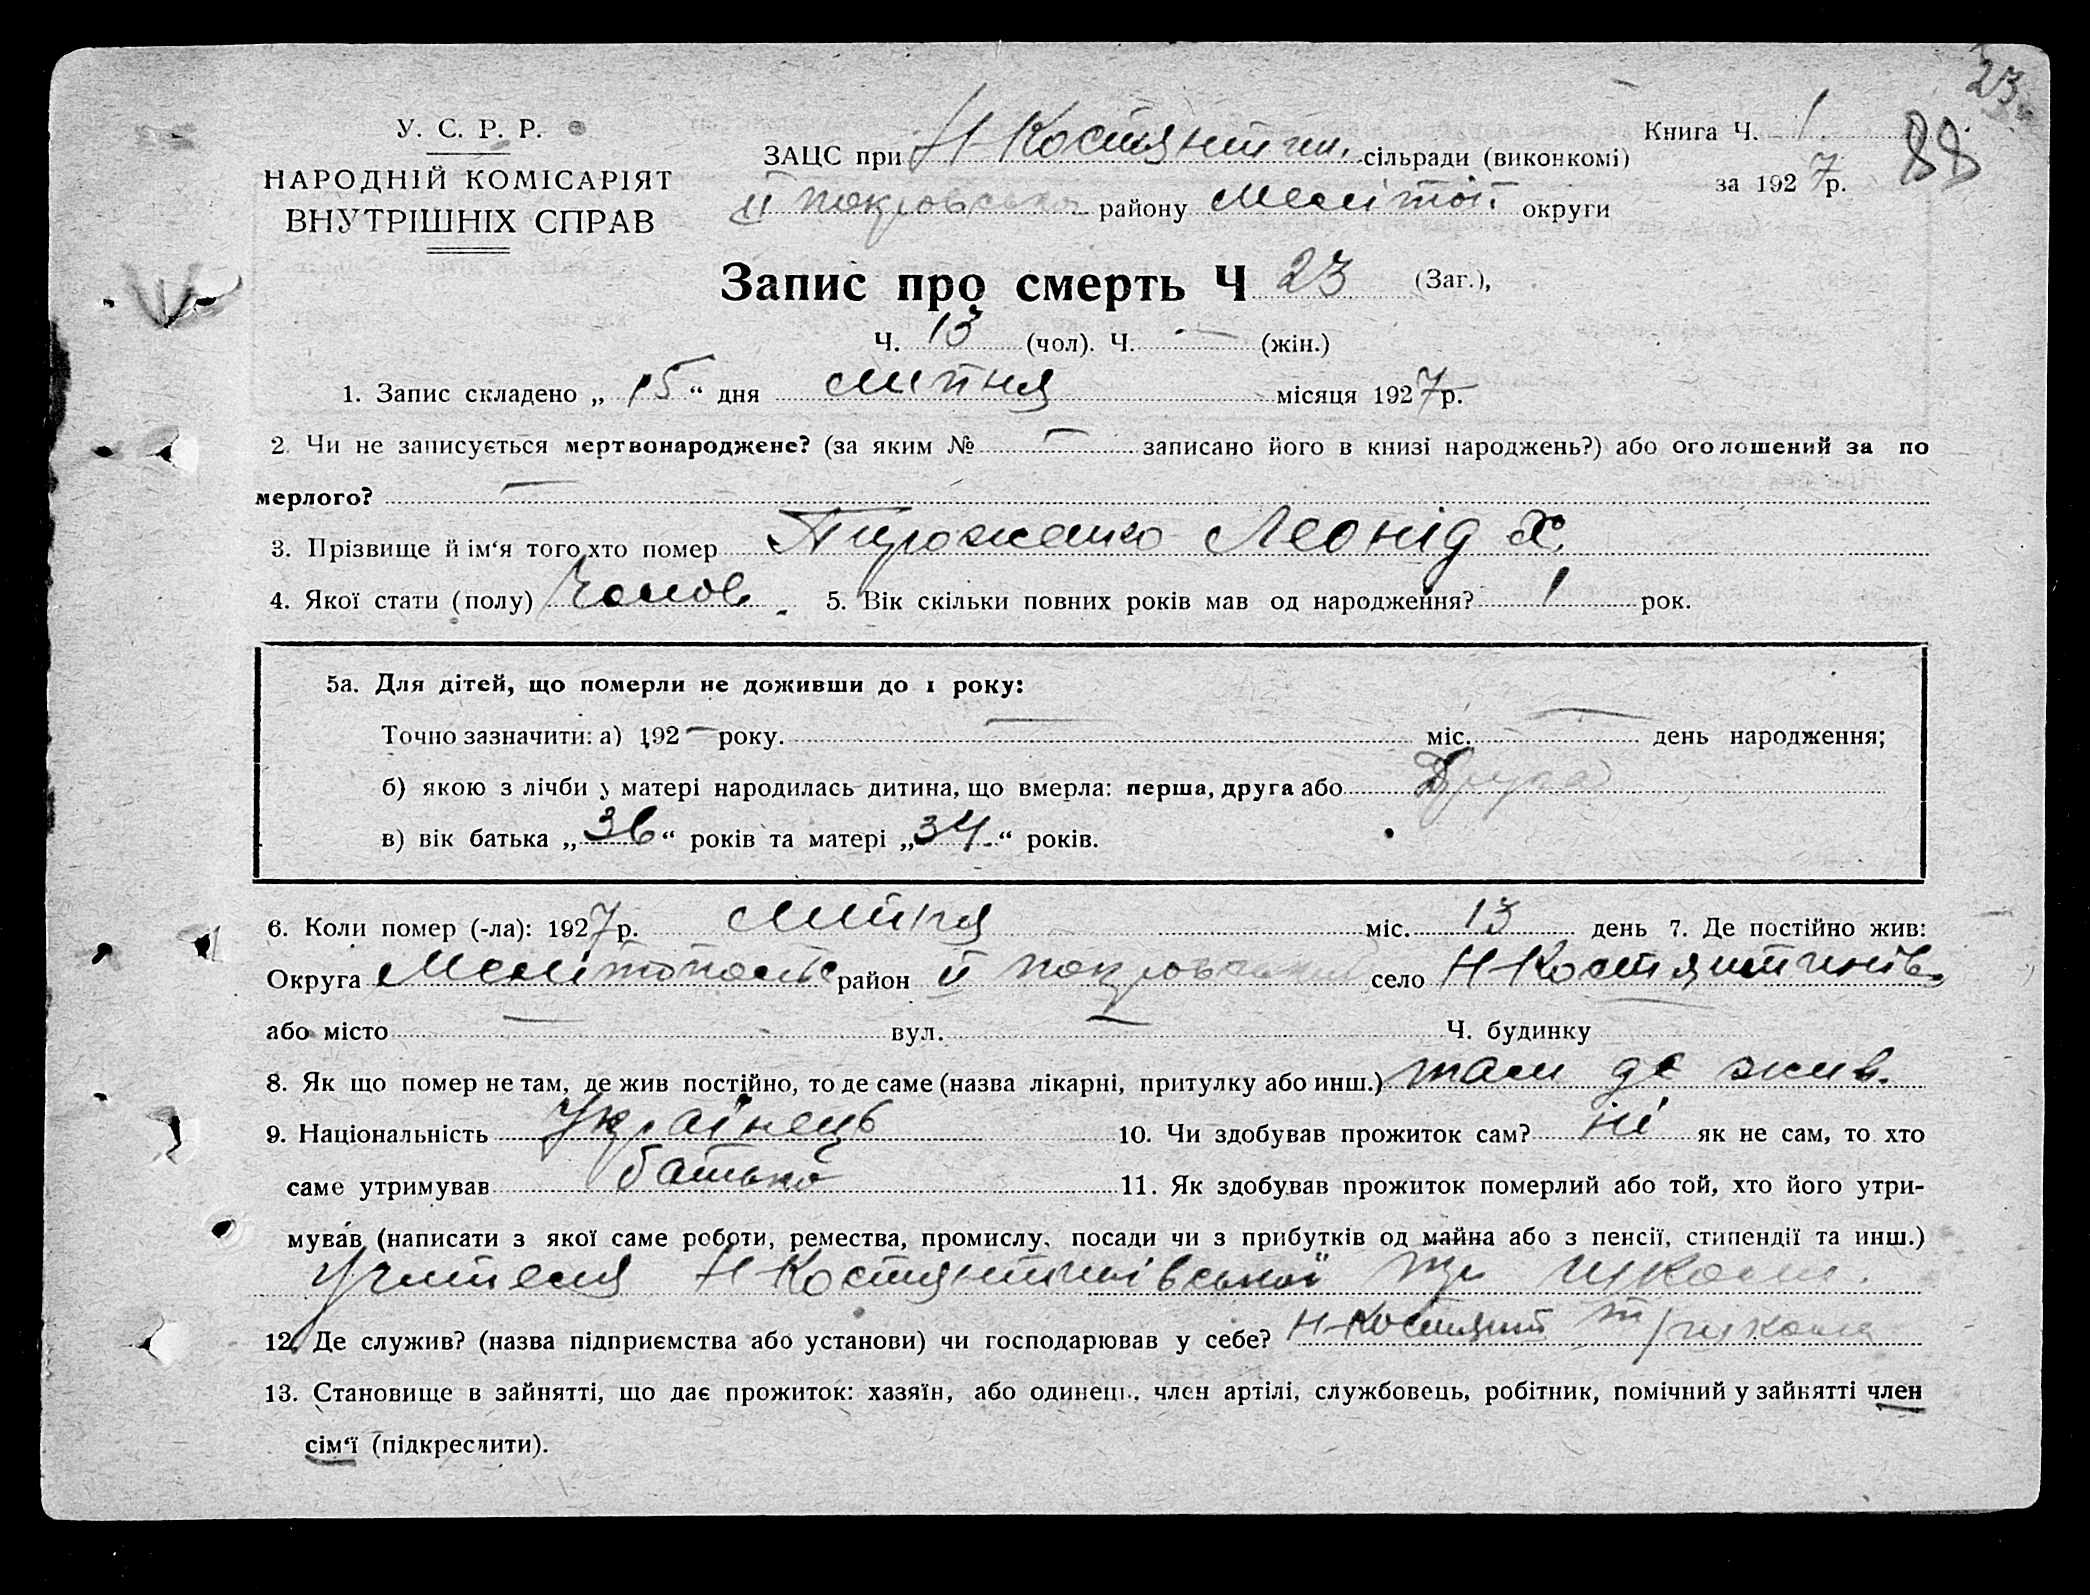 23
У. С. Р. Р.
НАРОДНІЙ КОМІСАРІЯТ
ВНУТРІШНІХ СПРАВ
ЗАЦС при Н-Костянтин. сільради (виконкомі)
ІІ покровсько району Меліт округи
Книга Ч. 1
за 1927 р.
88
Запис про смерть Ч 23 (Заг.),
Ч. 13 (чол). Ч. — (жін.)
1. Запис складено „ 15 “ дня липня місяця 1927 р.
2. Чи не записується мертвонароджене? (за яким № — записано його в книзі народжень?) або оголошений за по
мерлого? —
3. Прізвище й ім‘я того, хто помер Леонід Х.
4. Якої стати (полу) Чолов. 5. Вік скільки повних років мав од народження? 1 рок.
5а. Для дітей, що померли не доживши до 1 року:
Точно зазначити: а) 192 — року. — міс. — день народження;
б) якою з лічби у матері народилась дитина, що вмерла: перша, друга або Друга
в) вік батька „ 36 “ років та матері „ 34. “ років.
6. Коли помер (-ла): 1927 р. липня міс. 13 день 7. Де постійно жив:
Округа Мелітопольс район ІІ покровський село Н-Костянтинів.
або місто — вул. — Ч. будинку
8. Як що помер не там, де жив постійно, то де саме (назва лікарні, притулку або инш.) там де жив.
9. Національність Українець 10. Чи здобував прожиток сам? ні як не сам, то хто
саме утримував батько 11. Як здобував прожиток померлий або той, хто його утри-
мував (написати з якої саме роботи, ремества, промислу, посади чи з прибутків од майна або з пенсії, стипендії та инш.)
Учителя Н-Костянтинівської школи.
12. Де служив? (назва підприємства або установи) чи господарював у себе? Н-Костянт школа
13. Становище в зайнятті, що дає прожиток: хазяїн, або одинець, член артілі, службовець, робітник, помічний у зайнятті член
сім‘ї (підкреслити).